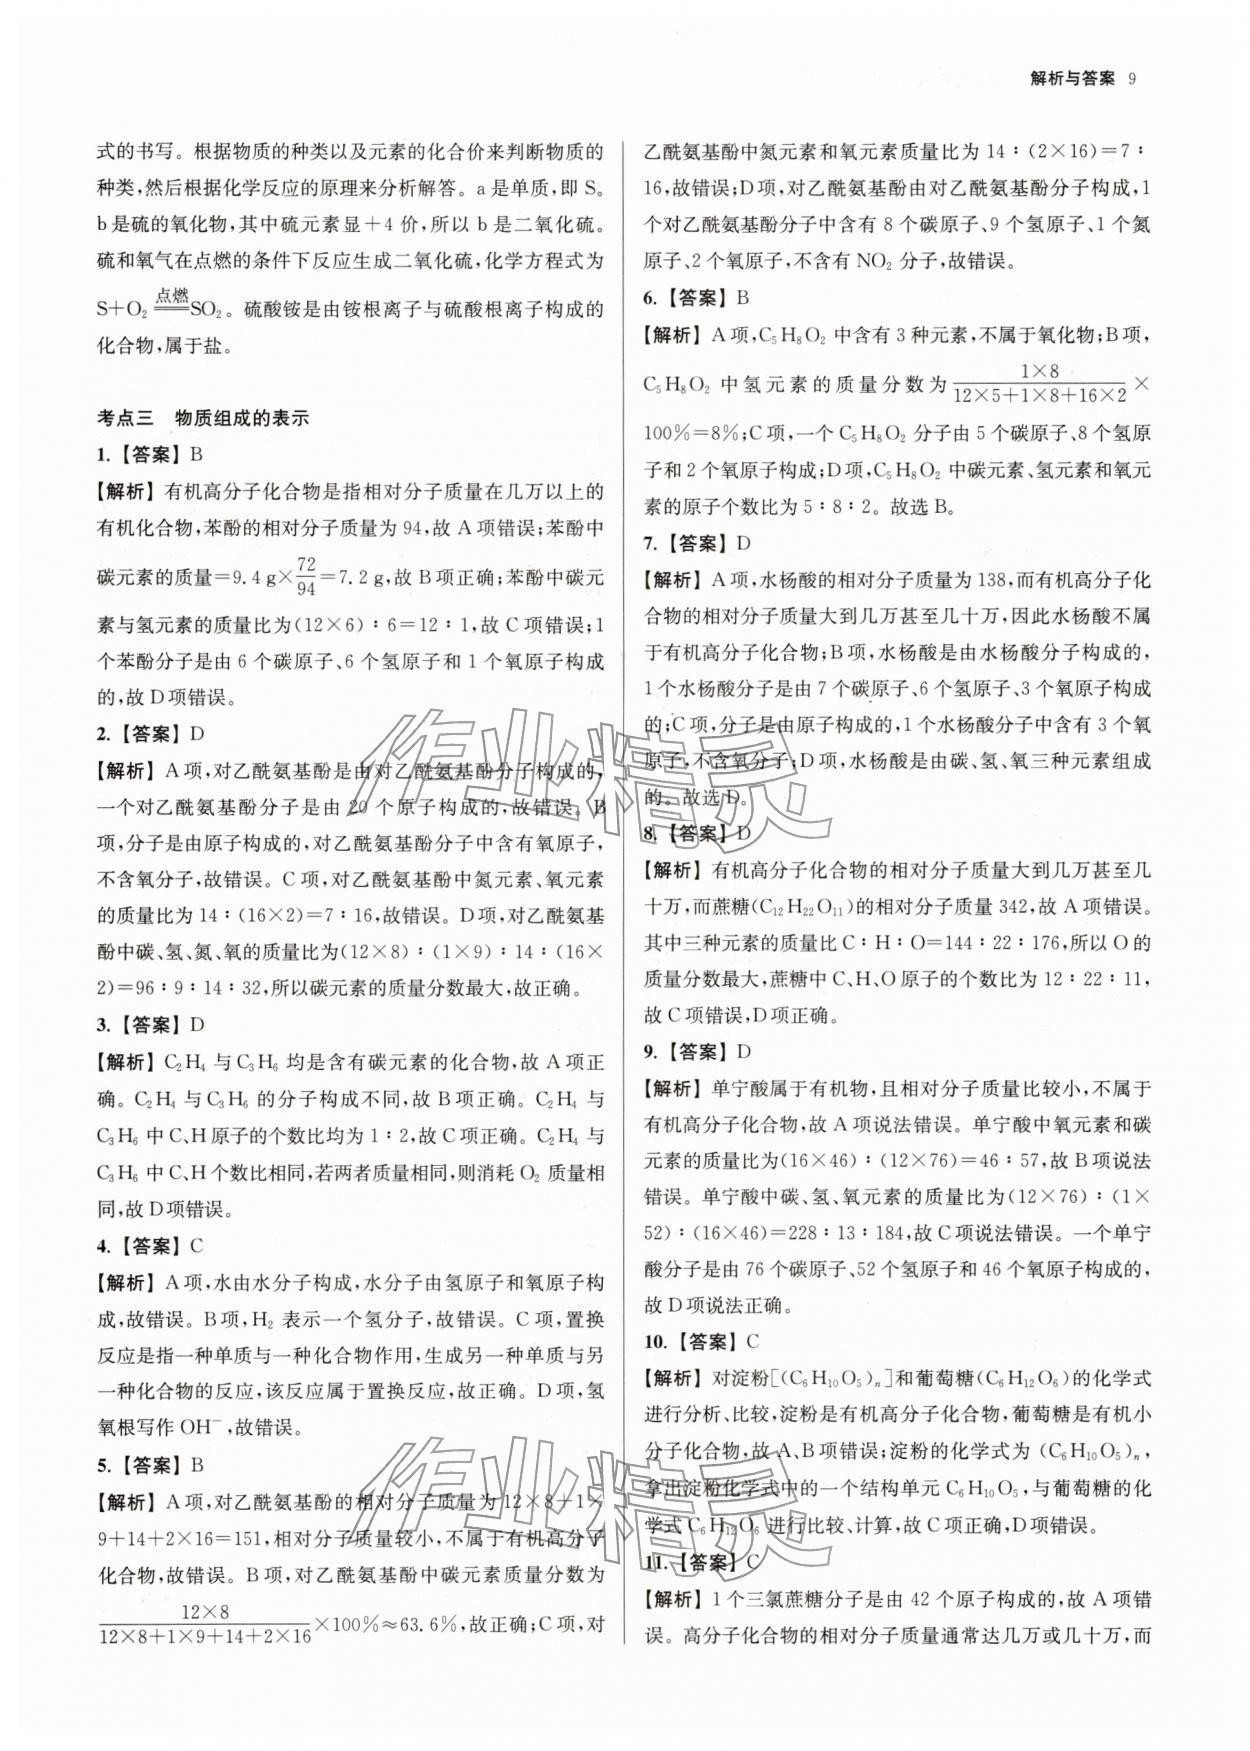 解析与答案 9
式的书写。根据物质的种类以及元素的化合价来判断物质的
种类,然后根据化学反应的原理来分析解答。a是单质,即S。
b是硫的氧化物,其中硫元素显+4价,所以b是二氧化硫。
硫和氧气在点燃的条件下反应生成二氧化硫,化学方程式为
S+O₂ 点燃══ SO₂。硫酸铵是由铵根离子与硫酸根离子构成的
化合物,属于盐。
考点三 物质组成的表示
1.【答案】B
【解析】有机高分子化合物是指相对分子质量在几万以上的
有机化合物,苯酚的相对分子质量为94,故A项错误;苯酚中
碳元素的质量=9.4 g×72/94=7.2 g,故B项正确;苯酚中碳元
素与氢元素的质量比为(12×6)∶6=12∶1,故C项错误;1
个苯酚分子是由6个碳原子、6个氢原子和1个氧原子构成
的,故D项错误。
2.【答案】D
【解析】A项,对乙酰氨基酚是由对乙酰氨基酚分子构成的,
一个对乙酰氨基酚分子是由20个原子构成的,故错误。B
项,分子是由原子构成的,对乙酰氨基酚分子中含有氧原子,
不含氧分子,故错误。C项,对乙酰氨基酚中氮元素、氧元素
的质量比为14∶(16×2)=7∶16,故错误。D项,对乙酰氨基
酚中碳、氢、氮、氧的质量比为(12×8)∶(1×9)∶14∶(16×
2)=96∶9∶14∶32,所以碳元素的质量分数最大,故正确。
3.【答案】D
【解析】C₂H₄与C₃H₆均是含有碳元素的化合物,故A项正
确。C₂H₄与C₃H₆的分子构成不同,故B项正确。C₂H₄与
C₃H₆中C、H原子的个数比均为1∶2,故C项正确。C₂H₄与
C₃H₆中C、H个数比相同,若两者质量相同,则消耗O₂质量相
同,故D项错误。
4.【答案】C
【解析】A项,水由水分子构成,水分子由氢原子和氧原子构
成,故错误。B项,H₂表示一个氢分子,故错误。C项,置换
反应是指一种单质与一种化合物作用,生成另一种单质与另
一种化合物的反应,该反应属于置换反应,故正确。D项,氢
氧根写作OH⁻,故错误。
5.【答案】B
【解析】A项,对乙酰氨基酚的相对分子质量为12×8+1×
9+14+2×16=151,相对分子质量较小,不属于有机高分子
化合物,故错误。B项,对乙酰氨基酚中碳元素质量分数为
12×8/(12×8+1×9+14+2×16)×100%≈63.6%,故正确;C项,对
乙酰氨基酚中氮元素和氧元素质量比为14∶(2×16)=7∶
16,故错误;D项,对乙酰氨基酚由对乙酰氨基酚分子构成,1
个对乙酰氨基酚分子中含有8个碳原子、9个氢原子、1个氮
原子、2个氧原子,不含有NO₂分子,故错误。
6.【答案】B
【解析】A项,C₅H₈O₂中含有3种元素,不属于氧化物;B项,
C₅H₈O₂中氢元素的质量分数为1×8/(12×5+1×8+16×2)×
100%=8%;C项,一个C₅H₈O₂分子由5个碳原子、8个氢原
子和2个氧原子构成;D项,C₅H₈O₂中碳元素、氢元素和氧元
素的原子个数比为5∶8∶2。故选B。
7.【答案】D
【解析】A项,水杨酸的相对分子质量为138,而有机高分子化
合物的相对分子质量大到几万甚至几十万,因此水杨酸不属
于有机高分子化合物;B项,水杨酸是由水杨酸分子构成的,
1个水杨酸分子是由7个碳原子、6个氢原子、3个氧原子构成
的;C项,分子是由原子构成的,1个水杨酸分子中含有3个氧
原子,不含氧分子;D项,水杨酸是由碳、氢、氧三种元素组成
的。故选D。
8.【答案】D
【解析】有机高分子化合物的相对分子质量大到几万甚至几
十万,而蔗糖(C₁₂H₂₂O₁₁)的相对分子质量342,故A项错误。
其中三种元素的质量比C∶H∶O=144∶22∶176,所以O的
质量分数最大,蔗糖中C、H、O原子的个数比为12∶22∶11,
故C项错误,D项正确。
9.【答案】D
【解析】单宁酸属于有机物,且相对分子质量比较小,不属于
有机高分子化合物,故A项说法错误。单宁酸中氧元素和碳
元素的质量比为(16×46)∶(12×76)=46∶57,故B项说法
错误。单宁酸中碳、氢、氧元素的质量比为(12×76)∶(1×
52)∶(16×46)=228∶13∶184,故C项说法错误。一个单宁
酸分子是由76个碳原子、52个氢原子和46个氧原子构成的,
故D项说法正确。
10.【答案】C
【解析】对淀粉[(C₆H₁₀O₅)ₙ]和葡萄糖(C₆H₁₂O₆)的化学式
进行分析、比较,淀粉是有机高分子化合物,葡萄糖是有机小
分子化合物,故A、B项错误;淀粉的化学式为(C₆H₁₀O₅)ₙ,
拿出淀粉化学式中的一个结构单元C₆H₁₀O₅,与葡萄糖的化
学式C₆H₁₂O₆进行比较、计算,故C项正确,D项错误。
11.【答案】C
【解析】1个三氯蔗糖分子是由42个原子构成的,故A项错
误。高分子化合物的相对分子质量通常达几万或几十万,而
作业精灵
作业精灵